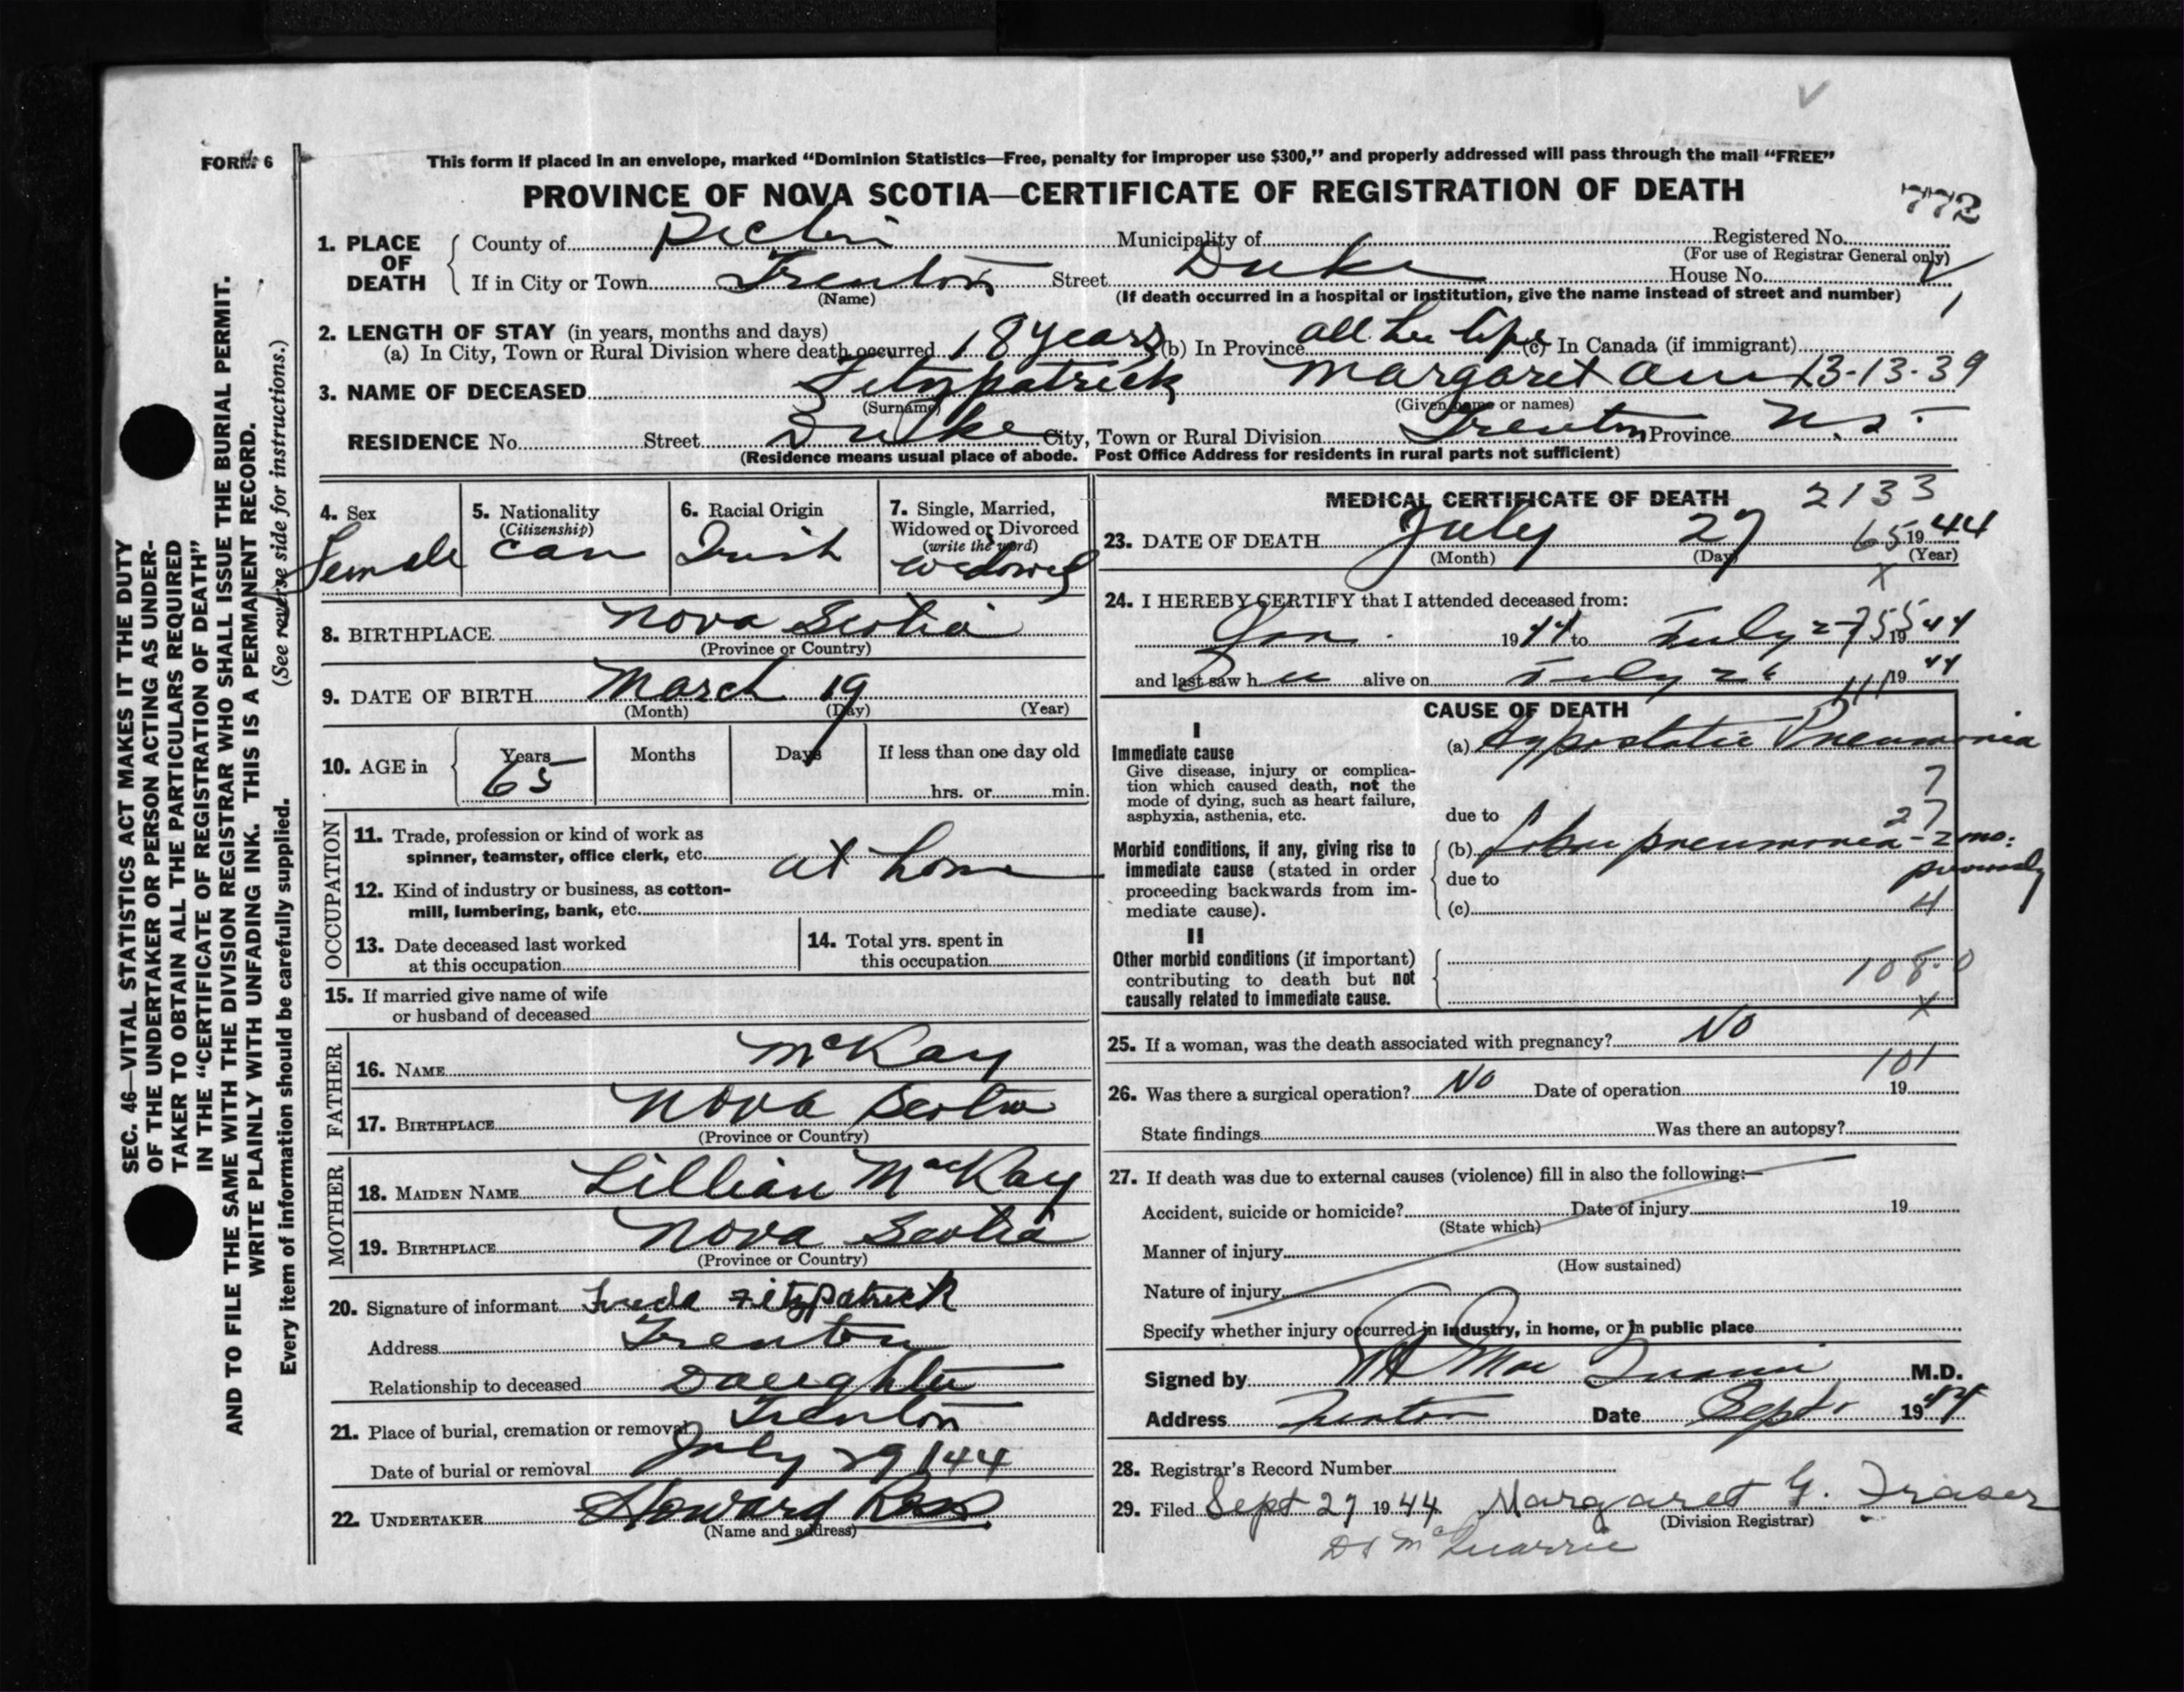 FORM 6
This form if placed in an envelope, marked “Dominion Statistics—Free, penalty for improper use $300,” and properly addressed will pass through the mail “FREE”
PROVINCE OF NOVA SCOTIA—CERTIFICATE OF REGISTRATION OF DEATH
772
1. PLACE OF DEATH
County of Pictou Municipality of Registered No.
(For use of Registrar General only)
If in City or Town Trenton Street Duke House No.
(Name) (If death occurred in a hospital or institution, give the name instead of street and number)
2. LENGTH OF STAY (in years, months and days)
(a) In City, Town or Rural Division where death occurred 18 years (b) In Province all her life (c) In Canada (if immigrant)
3. NAME OF DECEASED Fitzpatrick Margaret Ann 13-13-39
(Surname) (Given name or names)
RESIDENCE No. Street Duke City, Town or Rural Division Trenton Province N.S.
(Residence means usual place of abode. Post Office Address for residents in rural parts not sufficient)
4. Sex
Female
5. Nationality
(Citizenship)
Can
6. Racial Origin
Irish
7. Single, Married,
Widowed or Divorced
(write the word)
Widowed
8. BIRTHPLACE Nova Scotia
(Province or Country)
9. DATE OF BIRTH March 19
(Month) (Day) (Year)
10. AGE in Years Months Days If less than one day old
65 hrs. or min.
OCCUPATION
11. Trade, profession or kind of work as
spinner, teamster, office clerk, etc. at home
12. Kind of industry or business, as cotton-
mill, lumbering, bank, etc.
13. Date deceased last worked
at this occupation
14. Total yrs. spent in
this occupation
15. If married give name of wife
or husband of deceased
FATHER
16. NAME McKay
17. BIRTHPLACE Nova Scotia
(Province or Country)
MOTHER
18. MAIDEN NAME Lillian MacKay
19. BIRTHPLACE Nova Scotia
(Province or Country)
20. Signature of informant Freda Fitzpatrick
Address Trenton
Relationship to deceased Daughter
21. Place of burial, cremation or removal Trenton
Date of burial or removal July 29 / 44
22. UNDERTAKER Howard Ross
(Name and address)
MEDICAL CERTIFICATE OF DEATH 2133
23. DATE OF DEATH July 27 65 1944
(Month) (Day) (Year)
x
24. I HEREBY CERTIFY that I attended deceased from:
Jan. 1944 to July 27 1944
and last saw her alive on July 26 1944
CAUSE OF DEATH
I
Immediate cause
Give disease, injury or complica-
tion which caused death, not the
mode of dying, such as heart failure,
asphyxia, asthenia, etc.
(a) Hypostatic Pneumonia
7
due to 27
Morbid conditions, if any, giving rise to
immediate cause (stated in order
proceeding backwards from im-
mediate cause).
(b) Lobar pneumonia - 2 mo.
due to previously
(c) 4
II
Other morbid conditions (if important)
contributing to death but not
causally related to immediate cause.
108-0
x
25. If a woman, was the death associated with pregnancy? No
101
26. Was there a surgical operation? No Date of operation 19
State findings Was there an autopsy?
27. If death was due to external causes (violence) fill in also the following:—
Accident, suicide or homicide? Date of injury 19
(State which)
Manner of injury
(How sustained)
Nature of injury
Specify whether injury occurred in industry, in home, or in public place
Signed by M.D.
Address Trenton Date Sept. 1944
28. Registrar's Record Number
29. Filed Sept 27 1944 Margaret G. Fraser
(Division Registrar)
McQuarrie
SEC. 46—VITAL STATISTICS ACT MAKES IT THE DUTY
OF THE UNDERTAKER OR PERSON ACTING AS UNDER-
TAKER TO OBTAIN ALL THE PARTICULARS REQUIRED
IN THE “CERTIFICATE OF REGISTRATION OF DEATH”
AND TO FILE THE SAME WITH THE DIVISION REGISTRAR WHO SHALL ISSUE THE BURIAL PERMIT.
WRITE PLAINLY WITH UNFADING INK. THIS IS A PERMANENT RECORD.
Every item of information should be carefully supplied. (See reverse side for instructions.)